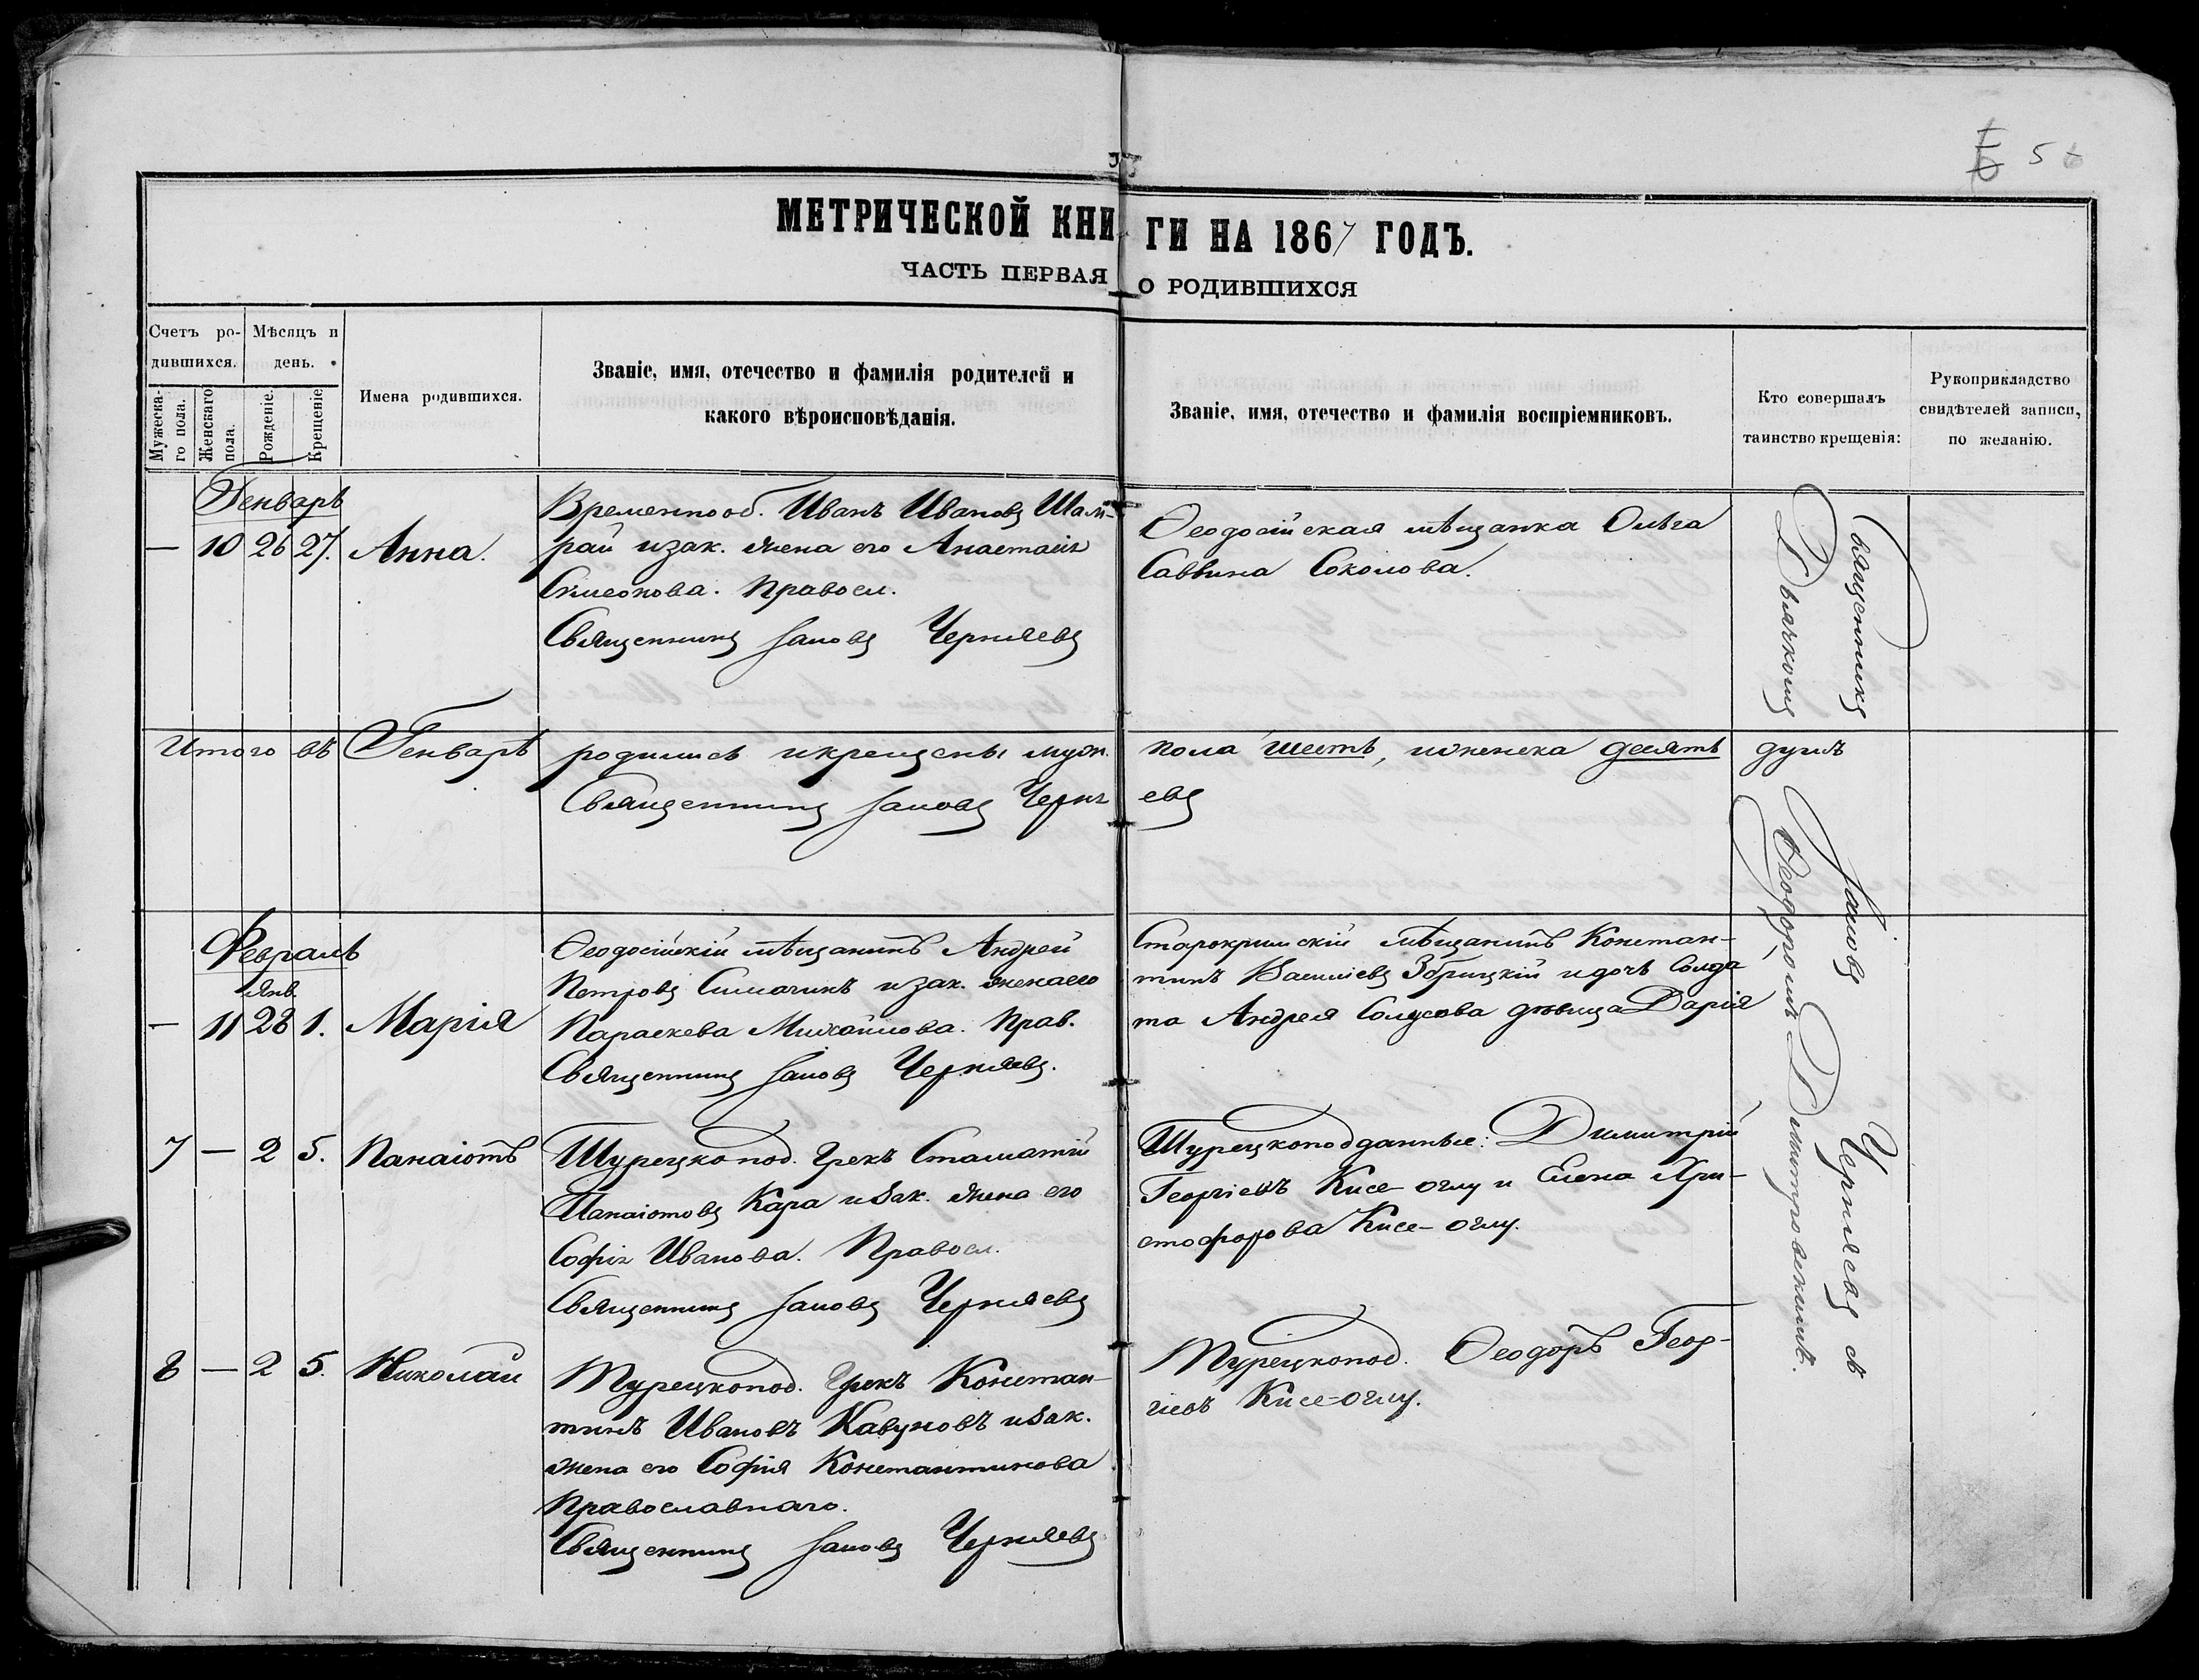 5
МЕТРИЧЕСКОЙ КНИГИ НА 1867 ГОДЪ.
ЧАСТЬ ПЕРВАЯ О РОДИВШИХСЯ
Счетъ ро-
дившихся.
Мѣсяцъ и
день.
Мужеска-
го пола.
Женскаго
пола.
Рожденіе.
Крещеніе.
Имена родившихся.
Званіе, имя, отечество и фамилія родителей и
какого вѣроисповѣданія.
Званіе, имя, отечество и фамилія воспріемниковъ.
Кто совершалъ
таинство крещенія:
Рукоприкладство
свидѣтелей записи,
по желанію.
Генварь
— 10 26 27. Анна.
Временнооб. Иванъ Ивановъ Шам-
рай и зак. жена его Анастасія
Симеонова. Правосл.
Священникъ Іаковъ Черняевъ
Ѳеодосійская мѣщанка Ольга
Саввина Соколова.
Священникъ
Итого въ Генварѣ родились и крещены муж. пола шесть, и женска десять душъ
Священникъ Іаковъ Черняевъ
Февраль
Янв.
— 11 28 1. Марія
Ѳеодосійскій мѣщанинъ Андрей
Петровъ Симачинъ и зак. жена его
Параскева Михайлова. Прав.
Священникъ Іаковъ Черняевъ.
Старокрымскій мѣщанинъ Констан-
тинъ Василіевъ Збрицкій и дочь солда
та Андрея девица Дарія
7 — 2 5. Панаіотъ
Турецкопод. Грекъ Стаматій
Панаіотовъ Кара и зак. жена его
Софія Иванова. Правосл.
Священникъ Іаковъ Черняевъ
Турецкоподданные: Димитрій
Георгіевъ Кисе-оглу и Елена Хри-
стофорова Кисе-оглу.
8 — 2 5. Николай
Турецкопод. Грекъ Констан-
тинъ Ивановъ Кавуновъ и зак.
жена его Софія Константинова
Православнаго.
Священникъ Іаковъ Черняевъ
Турецкопод. Ѳеодоръ Геор-
гіевъ Кисе-оглу.
Іаковъ Черняевъ съ
Дьячкомъ
Ѳеодоромъ Димитровскимъ.